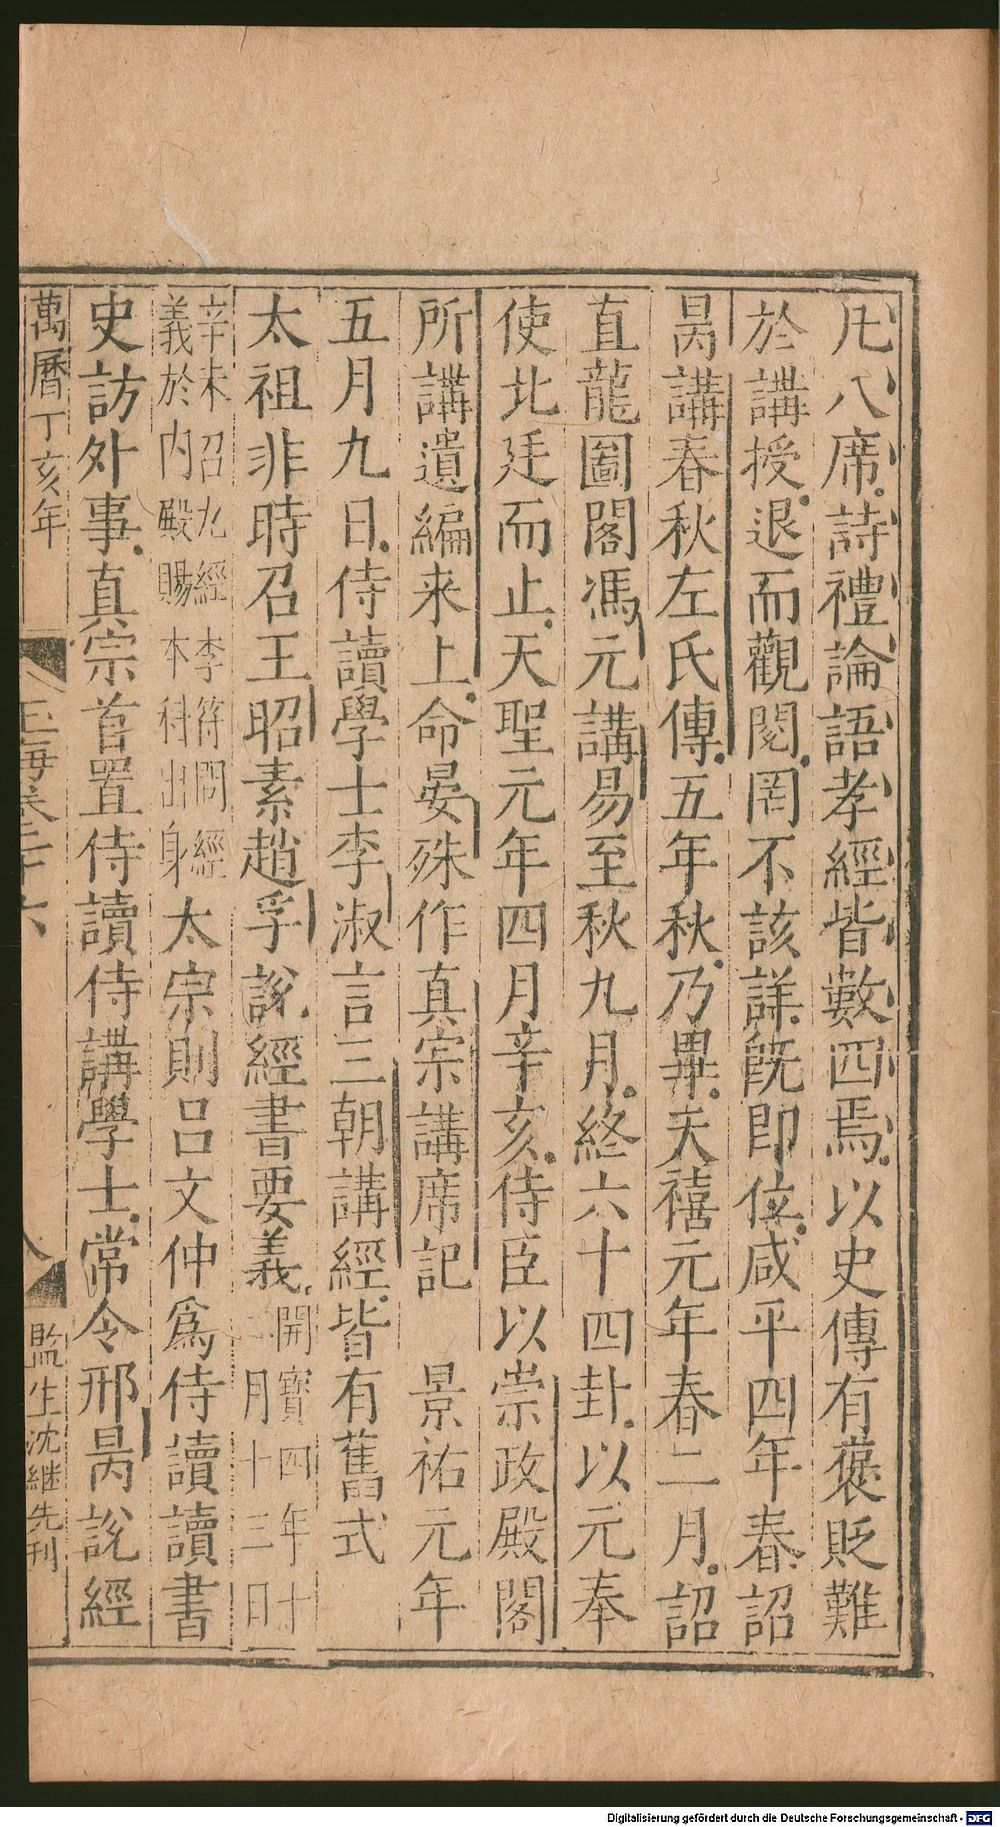 凡八席詩禮論語孝經皆數四焉以史傳有褒貶難
於講授退而觀閱罔不該詳既即位咸平四年春詔
昺講春秋左氏傳五年秋乃畢天禧元年春二月詔
直龍圖閣馮元講易至秋九月終六十四卦以元奉
使北廷而止天聖元年四月辛亥侍臣以崇政殿閣
所講遺編来上命晏殊作真宗講席記　景祐元年
五月九日侍讀學士李淑言三朝講經皆有舊式
太祖非時召王昭素趙孚說經書要義開寶四年十二月十三日
辛未召九經李符問經義於内殿賜本科出身太宗則呂文仲爲侍讀讀書
史訪外事真宗首置侍讀侍講學士常令邢昺說經
萬曆丁亥年　玉海卷二十六　八　監生沈継先刊
Digitalisierung gefördert durch die Deutsche Forschungsgemeinschaft - DFG